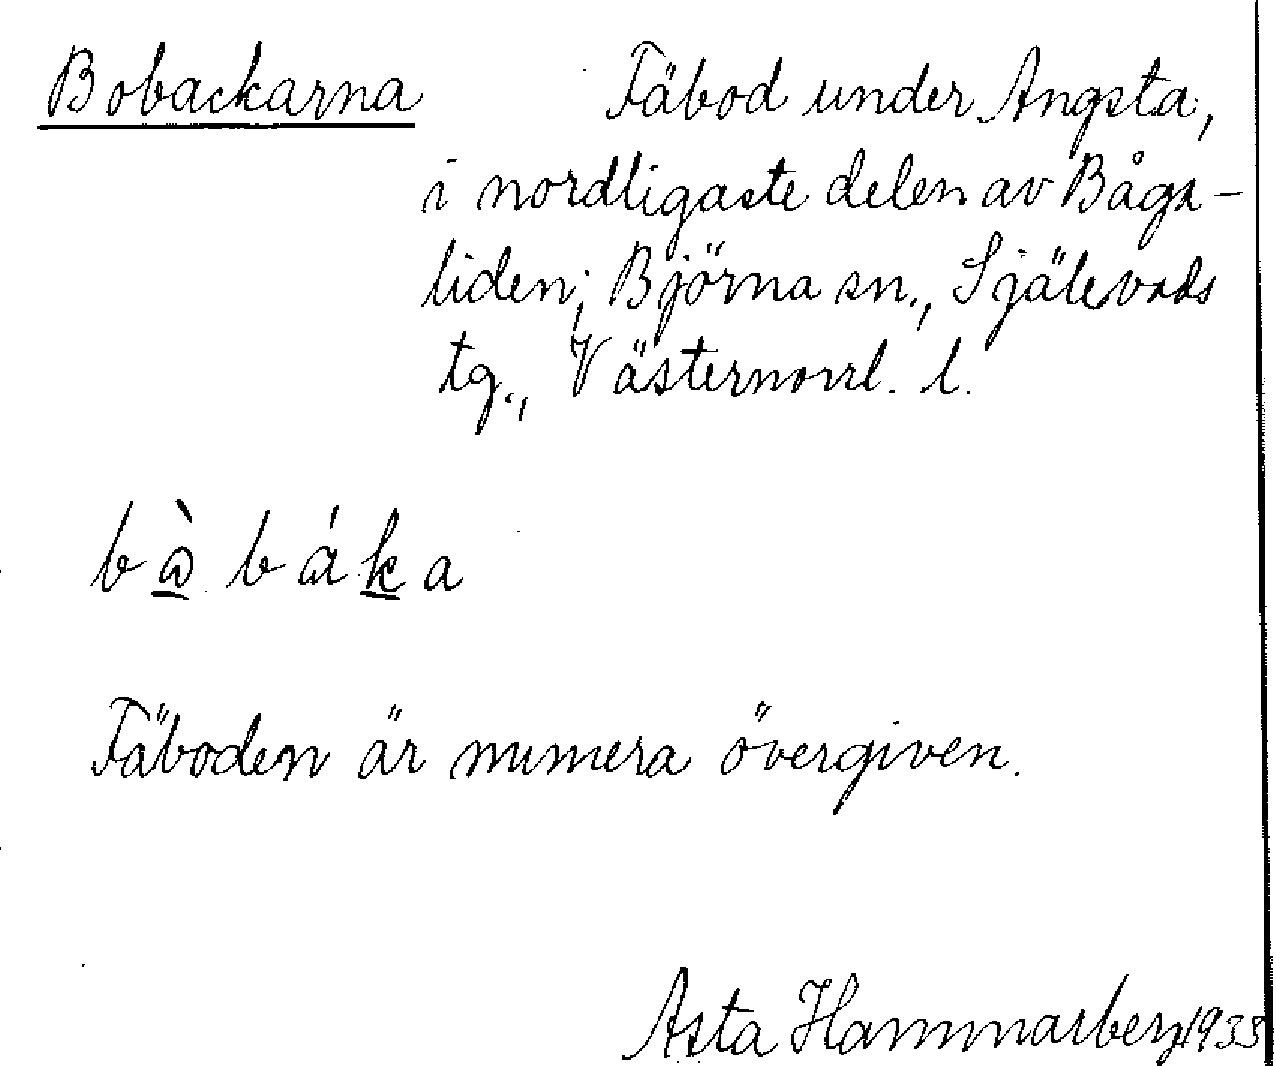 Bobackarna Fäbod under Angsta,
i nordligaste delen av Båga-
liden; Björna sn., Själevads
tg., Västernorrl. l.
bàbáka
Fäboden är numera övergiven.
Asta Hammarberg 1933